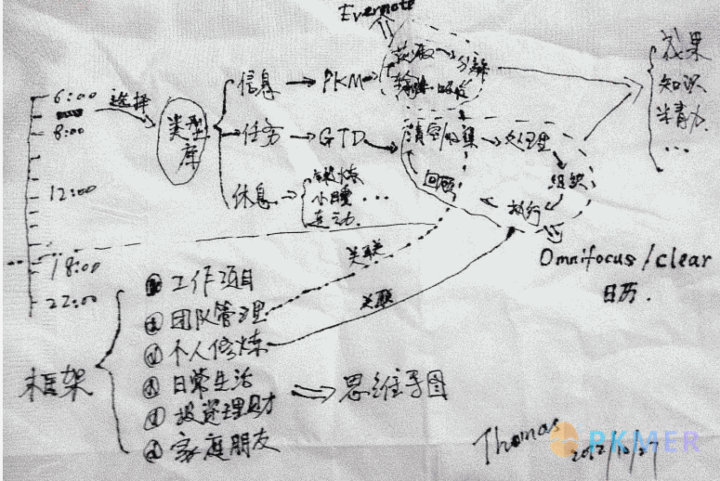 Evernote
获取 分解
6:00
选择
8:00
类型库
信息 PKM
任务 GTD
清空收集 处理
回顾 组织
执行
休息
锻炼
小睡
运动
...
成果
知识
精力
...
12:00
18:00
22:00
Omnifocus/clear
日历.
关联
关联
框架
工作项目
团队管理
个人修炼
日常生活
投资理财
家庭朋友
思维导图
Thomas
2012/12/27
PKMER